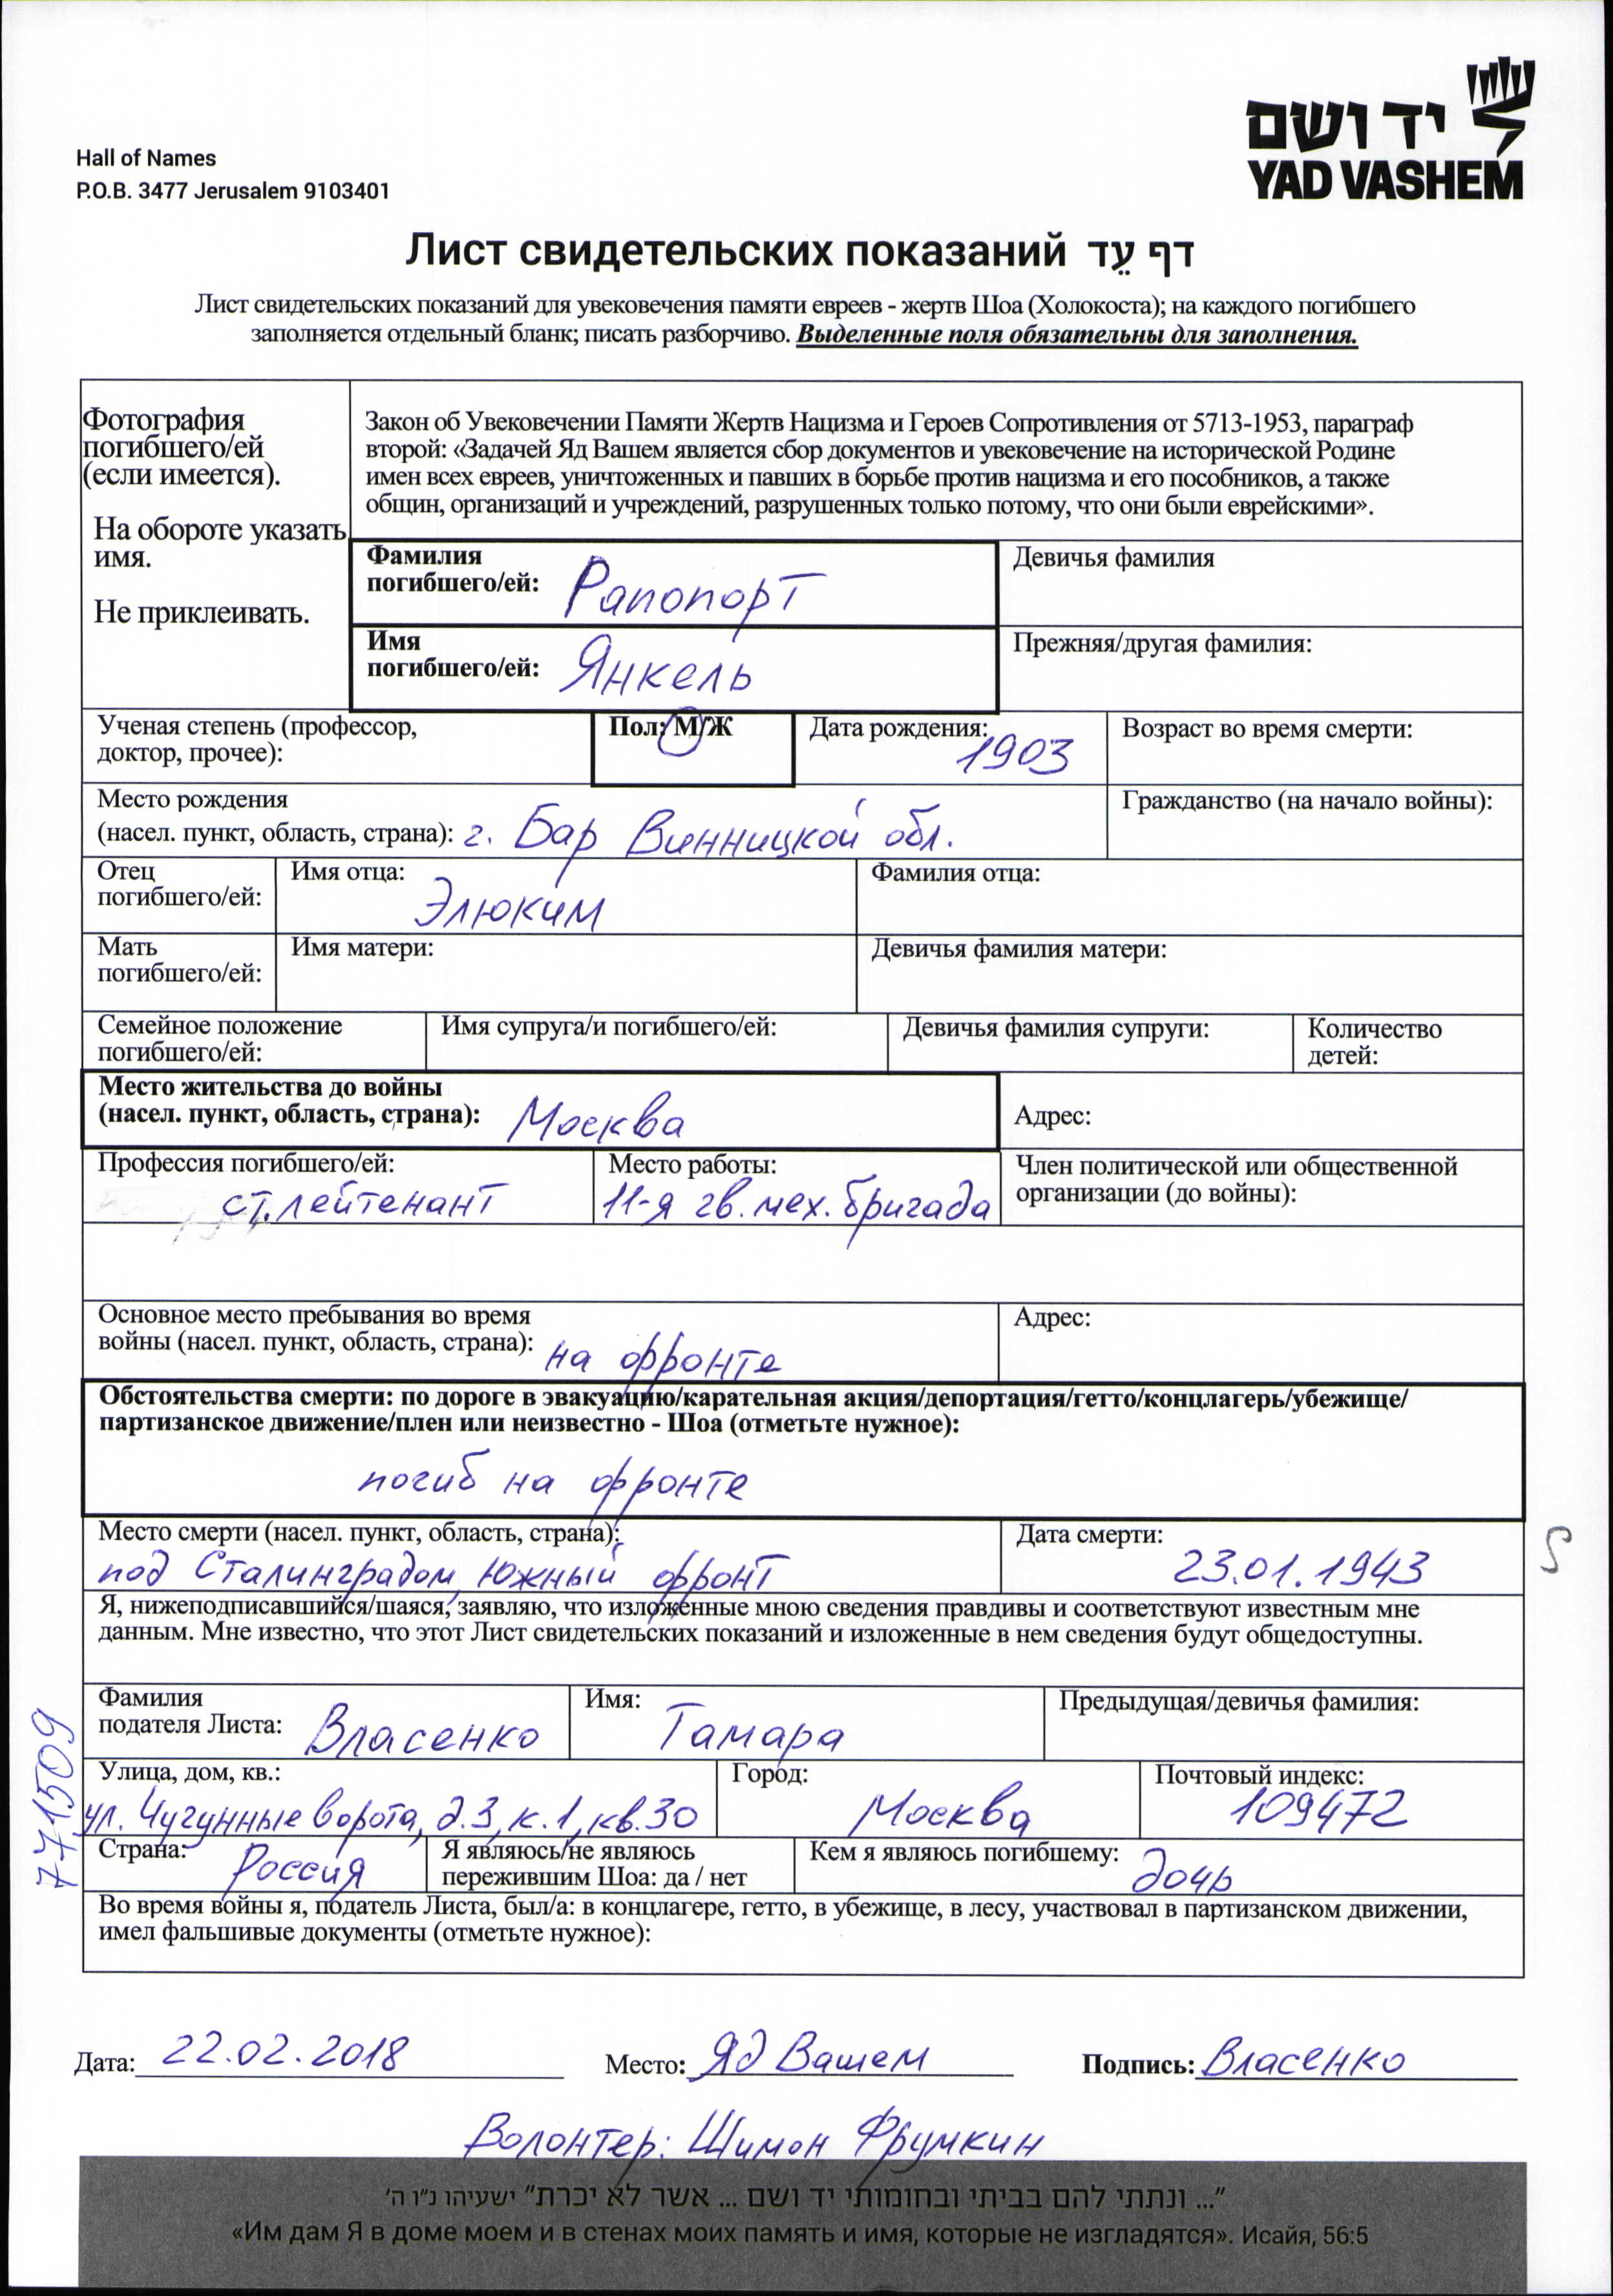 Hall of Names
P.O.B. 3477 Jerusalem 9103401
יד ושם
YAD VASHEM
Лист свидетельских показаний דף עֵד
Лист свидетельских показаний для увековечения памяти евреев - жертв Шоа (Холокоста); на каждого погибшего
заполняется отдельный бланк; писать разборчиво. Выделенные поля обязательны для заполнения.
Фотография
погибшего/ей
(если имеется).
На обороте указать
имя.
Не приклеивать.
Закон об Увековечении Памяти Жертв Нацизма и Героев Сопротивления от 5713-1953, параграф
второй: «Задачей Яд Вашем является сбор документов и увековечение на исторической Родине
имен всех евреев, уничтоженных и павших в борьбе против нацизма и его пособников, а также
общин, организаций и учреждений, разрушенных только потому, что они были еврейскими».
Фамилия
погибшего/ей: Рапопорт
Девичья фамилия
Имя
погибшего/ей: Янкель
Прежняя/другая фамилия:
Ученая степень (профессор,
доктор, прочее):
Пол: М/Ж
Дата рождения: 1903
Возраст во время смерти:
Место рождения
(насел. пункт, область, страна): г. Бар Винницкой обл.
Гражданство (на начало войны):
Отец
погибшего/ей:
Имя отца: Элюким
Фамилия отца:
Мать
погибшего/ей:
Имя матери:
Девичья фамилия матери:
Семейное положение
погибшего/ей:
Имя супруга/и погибшего/ей:
Девичья фамилия супруги:
Количество
детей:
Место жительства до войны
(насел. пункт, область, страна): Москва
Адрес:
Профессия погибшего/ей:
ст. лейтенант
Место работы:
11-я гв. мех. бригада
Член политической или общественной
организации (до войны):
Основное место пребывания во время
войны (насел. пункт, область, страна): на фронте
Адрес:
Обстоятельства смерти: по дороге в эвакуацию/карательная акция/депортация/гетто/концлагерь/убежище/
партизанское движение/плен или неизвестно - Шоа (отметьте нужное):
погиб на фронте
Место смерти (насел. пункт, область, страна):
под Сталинградом, Южный фронт
Дата смерти:
23.01.1943
S
Я, нижеподписавшийся/шаяся, заявляю, что изложенные мною сведения правдивы и соответствуют известным мне
данным. Мне известно, что этот Лист свидетельских показаний и изложенные в нем сведения будут общедоступны.
Фамилия
подателя Листа: Власенко
Имя:
Тамара
Предыдущая/девичья фамилия:
771509
Улица, дом, кв.:
ул. Чугунные ворота, д.3, к.1, кв.30
Город:
Москва
Почтовый индекс:
109472
Страна: Россия
Я являюсь/не являюсь
пережившим Шоа: да / нет
Кем я являюсь погибшему: дочь
Во время войны я, податель Листа, был/а: в концлагере, гетто, в убежище, в лесу, участвовал в партизанском движении,
имел фальшивые документы (отметьте нужное):
Дата: 22.02.2018 Место: Яд Вашем Подпись: Власенко
Волонтер: Шимон Фрумкин
"... ונתתי להם בביתי ובחומותי יד ושם ... אשר לא יכרת" ישעיהו נ"ו ה'
«Им дам Я в доме моем и в стенах моих память и имя, которые не изгладятся». Исайя, 56:5